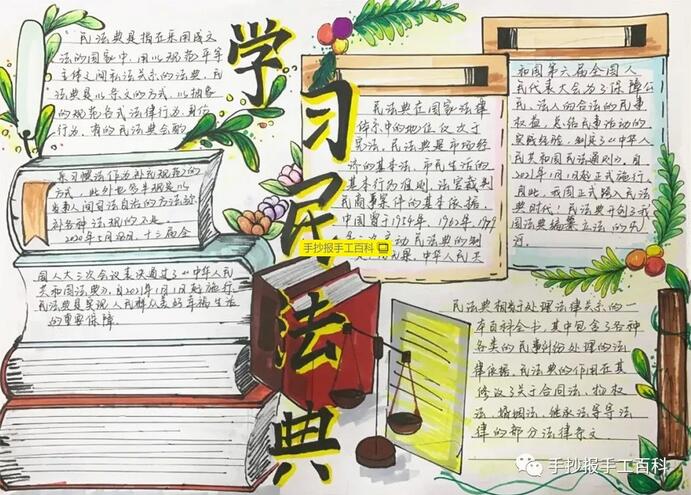 学习民法典
民法典是指在采用成文
法的国家中,用以规范平等
主体之间私法关系的法典,民
法典是以条文的方式,以抽象
的规范各式法律行为,身份
行为,有的民法典会酌
采习惯法作为补民规范之的
方式,此外也多半规定以
当事人间习法自治的方法弥
补各种法规的不足
2020年5月28日,十三届全
国人大三次会议表决通过了《中华人民
共和国民法典》,自2021年1月1日起施行
民法典是实现人民群众美好幸福生活
的重要保障。
民法典在国家法律
体系中的地位仅次于
宪法,民法典是市场经
济的基本法,市民生活的
基本行为准则,法官裁判
民商事案件的基本依据,
中国曾于1954年,1962年,1979
民法典的制
中华人民共
和国第六届全国人
民代表大会为了保障公
民、法人的合法的民事
权益,总结民事活动的
实践经验,制定了《中华人
民共和国民法通则》,自
2021年1月1日起正式施行,
自此,我国正式踏入民法
典时代!民法典开创了我
国法典编纂立法的先
河。
民法典相当于处理法律关系的一
本百科全书,其中包含了各种
各类的民事纠纷处理的法
律依据,民法典的作用在其
修改了关于合同法,物权
法,婚姻法,继承法等等法
律的部分法律条文
手抄报手工百科
手抄报手工百科